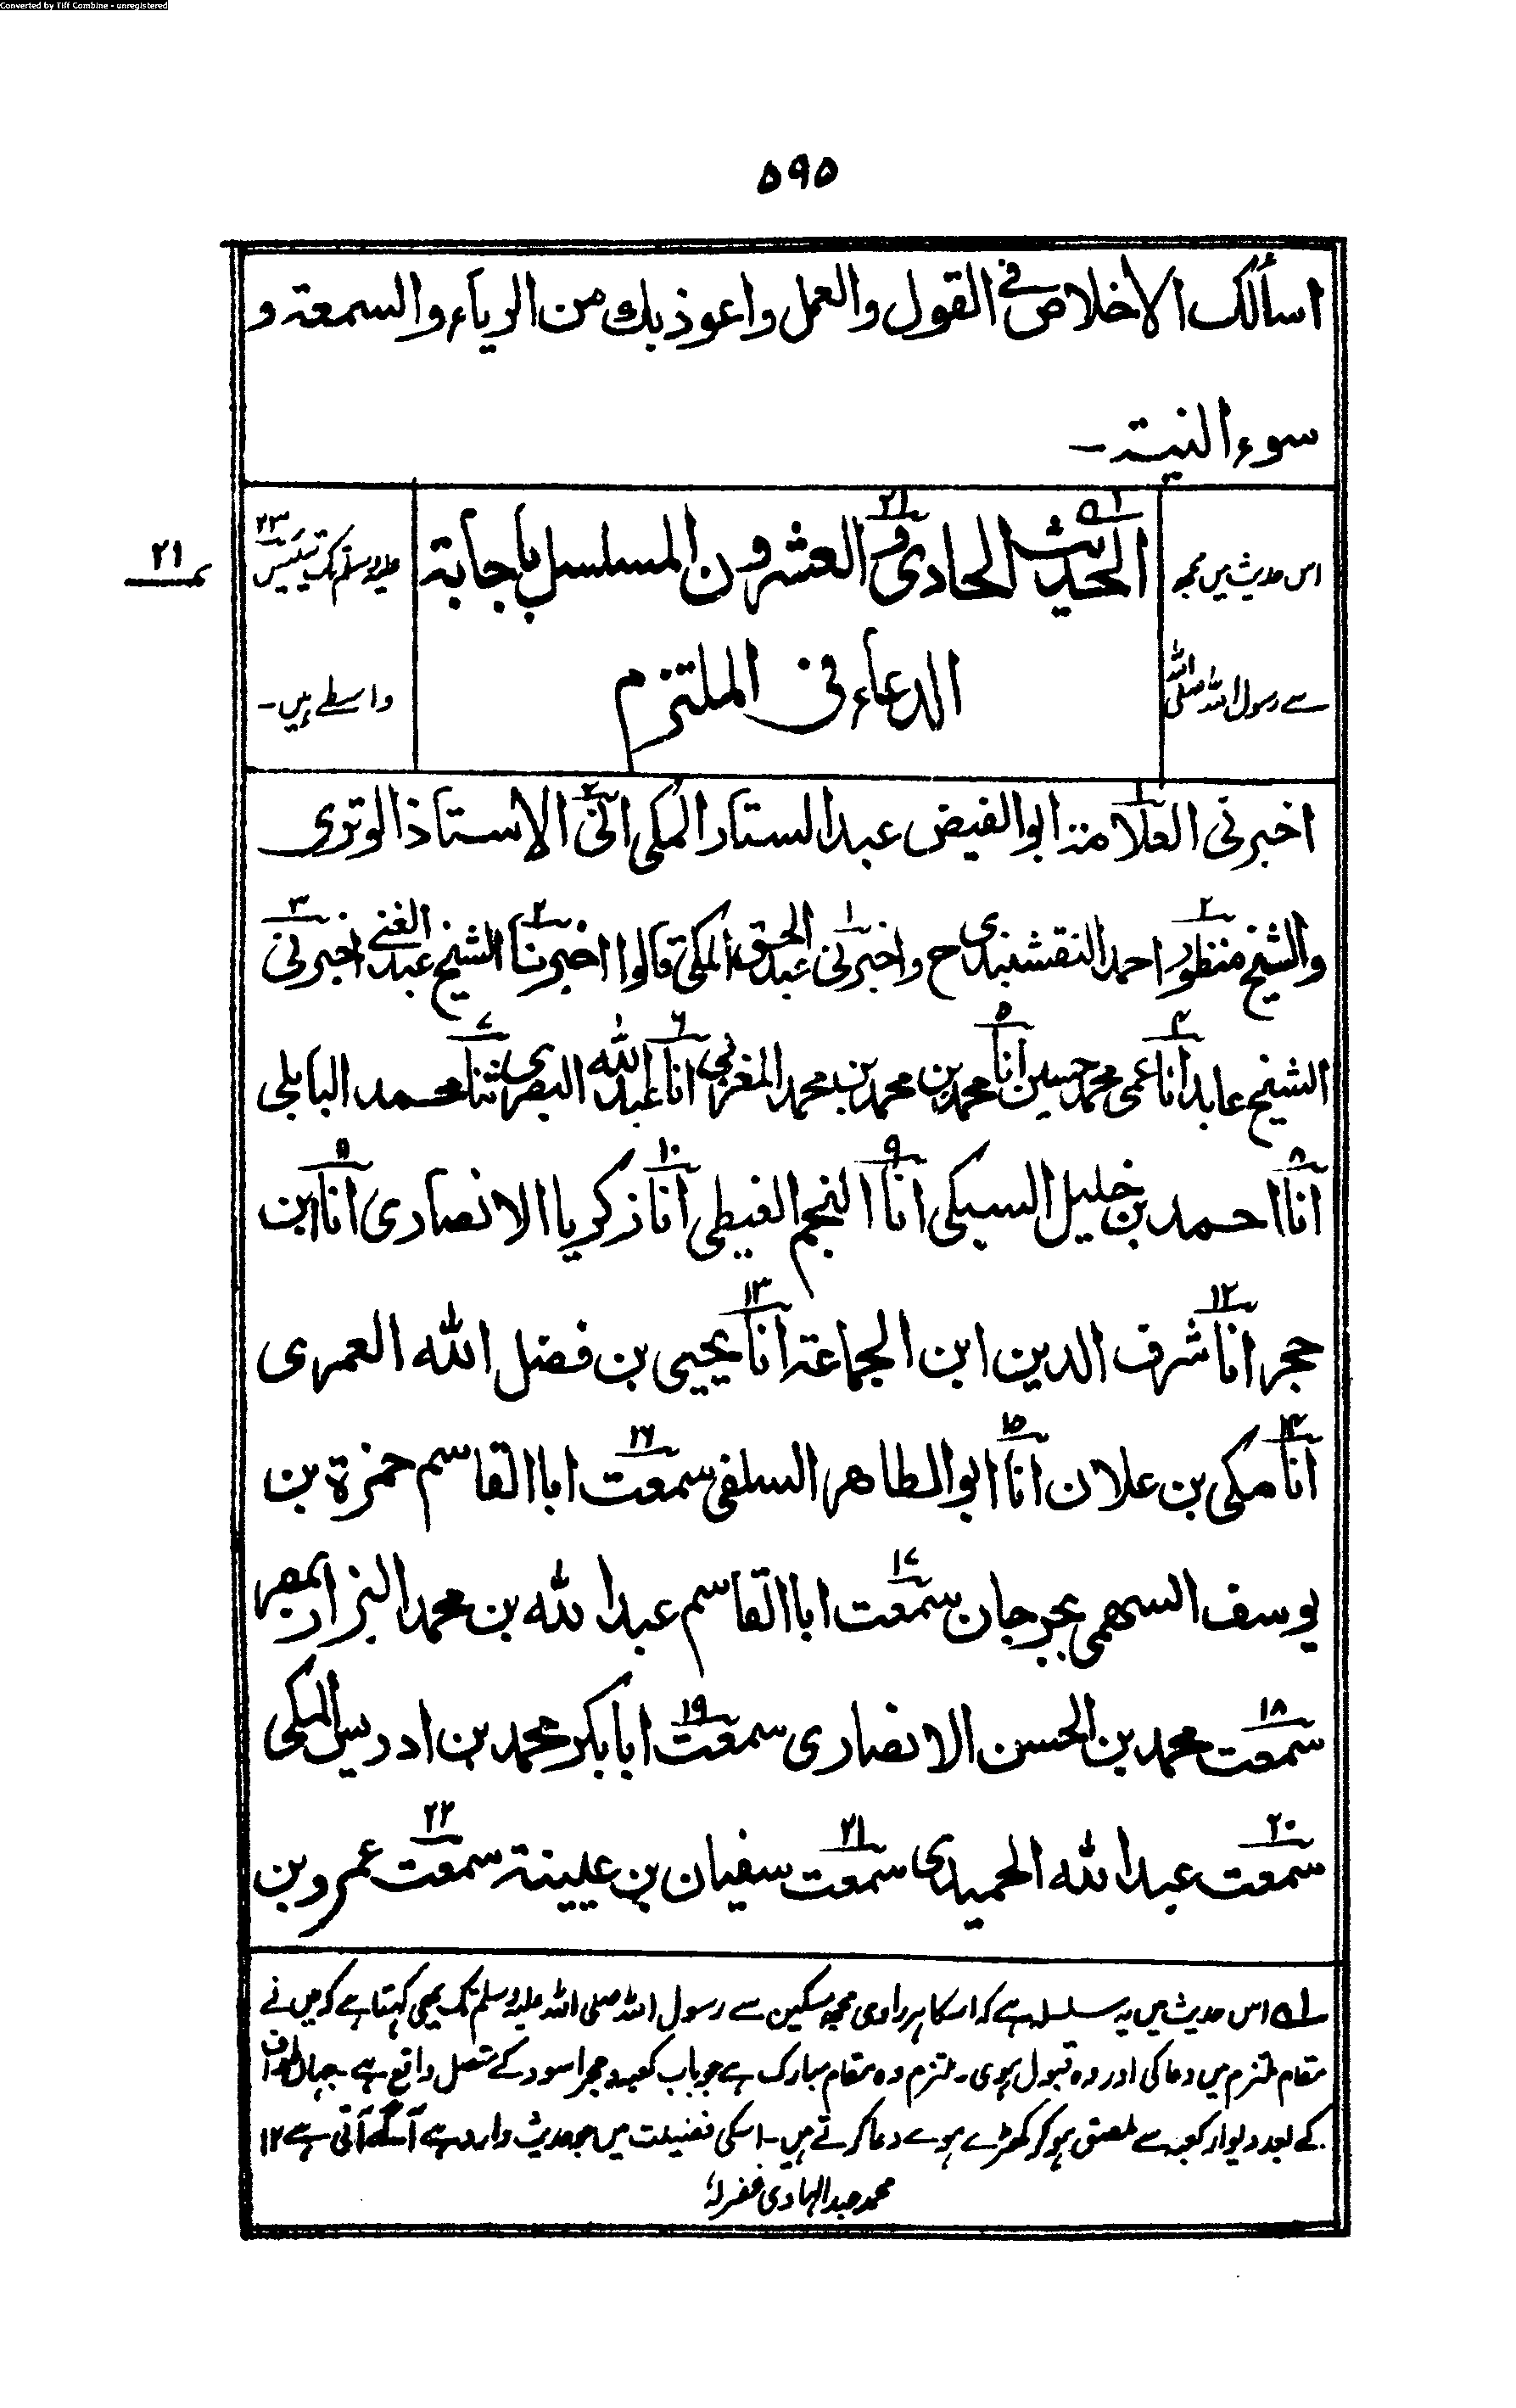 Converted by Tiff Combine - unregistered
۵۹۵
اسألك الاخلاص فی القول والعمل واعوذ بك من الریاء والسمعة و
سوء النیة۔
۲۱
اس حدیث میں مجھ
سے رسول اللہ صلی اللہ
الحدیث الحادی و العشرون المسلسل باجابة
الدعاء فی الملتزم
علیہ وسلم تک تیئیس ۲۳
واسطے ہیں۔
اخبرنی العلامة ابوالفیض عبدالستار المکی انی الاستاذ الوتری
والشیخ منظور احمد النقشبندی ح واخبرنی عبدالحق المکی قالوا اخبرنا الشیخ عبدالغنی اخبرنی
الشیخ عابد انا عمی محمد حسین انا محمد بن محمد بن محمد المغربی انا عبدالله البصری ثنا محمد البابلی
انا احمد بن خلیل السبکی انا النجم الغیطی انا زکریا الانصاری انا ابن
حجر انا شرف الدین ابن الجماعة انا یحیی بن فضل الله العمری
انا مکی بن علان انا ابو الطاهر السلفی سمعت ابا القاسم حمزة بن
یوسف السهمی بجرجان سمعت ابا القاسم عبد الله بن محمد البزار بمصر
سمعت محمد بن الحسن الانصاری سمعت ابا بکر محمد بن ادریس المکی
سمعت عبد الله الحمیدی سمعت سفیان بن عیینة سمعت عمرو بن
لہ اس حدیث میں یہ سلسلہ ہے کہ اسکا ہر راوی مجھ مسکین سے رسول اللہ صلی اللہ علیہ وسلم تک یہی کہتا ہے کہ میں نے
مقام ملتزم میں دعا کی اور وہ قبول ہوی۔ ملتزم وہ مقام مبارک ہے جو باب کعبہ و حجر اسود کے متصل واقع ہے۔ جہاں طواف
کے بعد دیوار کعبہ سے ملصق ہو کر کھڑے ہوے دعا کرتے ہیں۔ اسکی فضیلت میں جو حدیث وارد ہے آگے آتی ہے ۱۲
محمد عبد الہادی غفرلہٗ